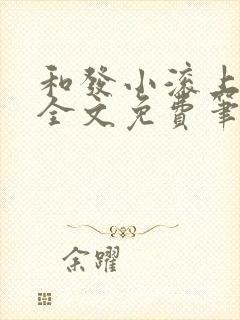 和發小滾上
全文免費筆
余躍